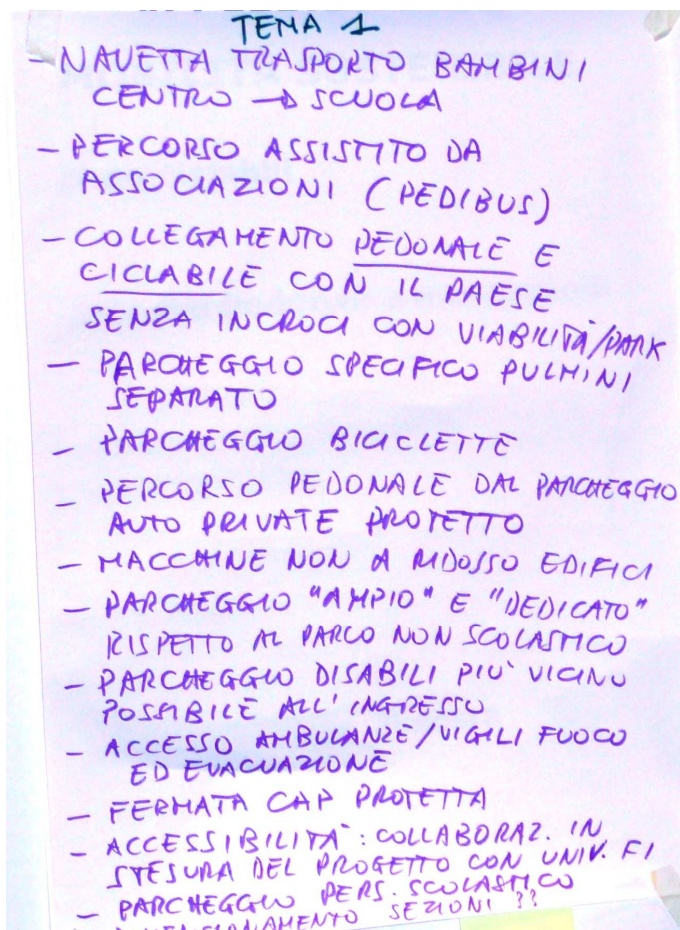 TEMA 1
- NAVETTA TRASPORTO BAMBINI
CENTRO → SCUOLA
- PERCORSO ASSISTITO DA
ASSOCIAZIONI (PEDIBUS)
- COLLEGAMENTO PEDONALE E
CICLABILE CON IL PAESE
SENZA INCROCI CON VIABILITÀ/PARK
- PARCHEGGIO SPECIFICO PULMINI
SEPARATO
- PARCHEGGIO BICICLETTE
- PERCORSO PEDONALE DAL PARCHEGGIO
AUTO PRIVATE PROTETTO
- MACCHINE NON A RIDOSSO EDIFICI
- PARCHEGGIO "AMPIO" E "DEDICATO"
RISPETTO AL PARCO NON SCOLASTICO
- PARCHEGGIO DISABILI PIU' VICINO
POSSIBILE ALL'INGRESSO
- ACCESSO AMBULANZE/VIGILI FUOCO
ED EVACUAZIONE
- FERMATA CAP PROTETTA
- ACCESSIBILITÀ: COLLABORAZ. IN
STESURA DEL PROGETTO CON UNIV. FI
- PARCHEGGIO PERS. SCOLASTICO
SEZIONI ??